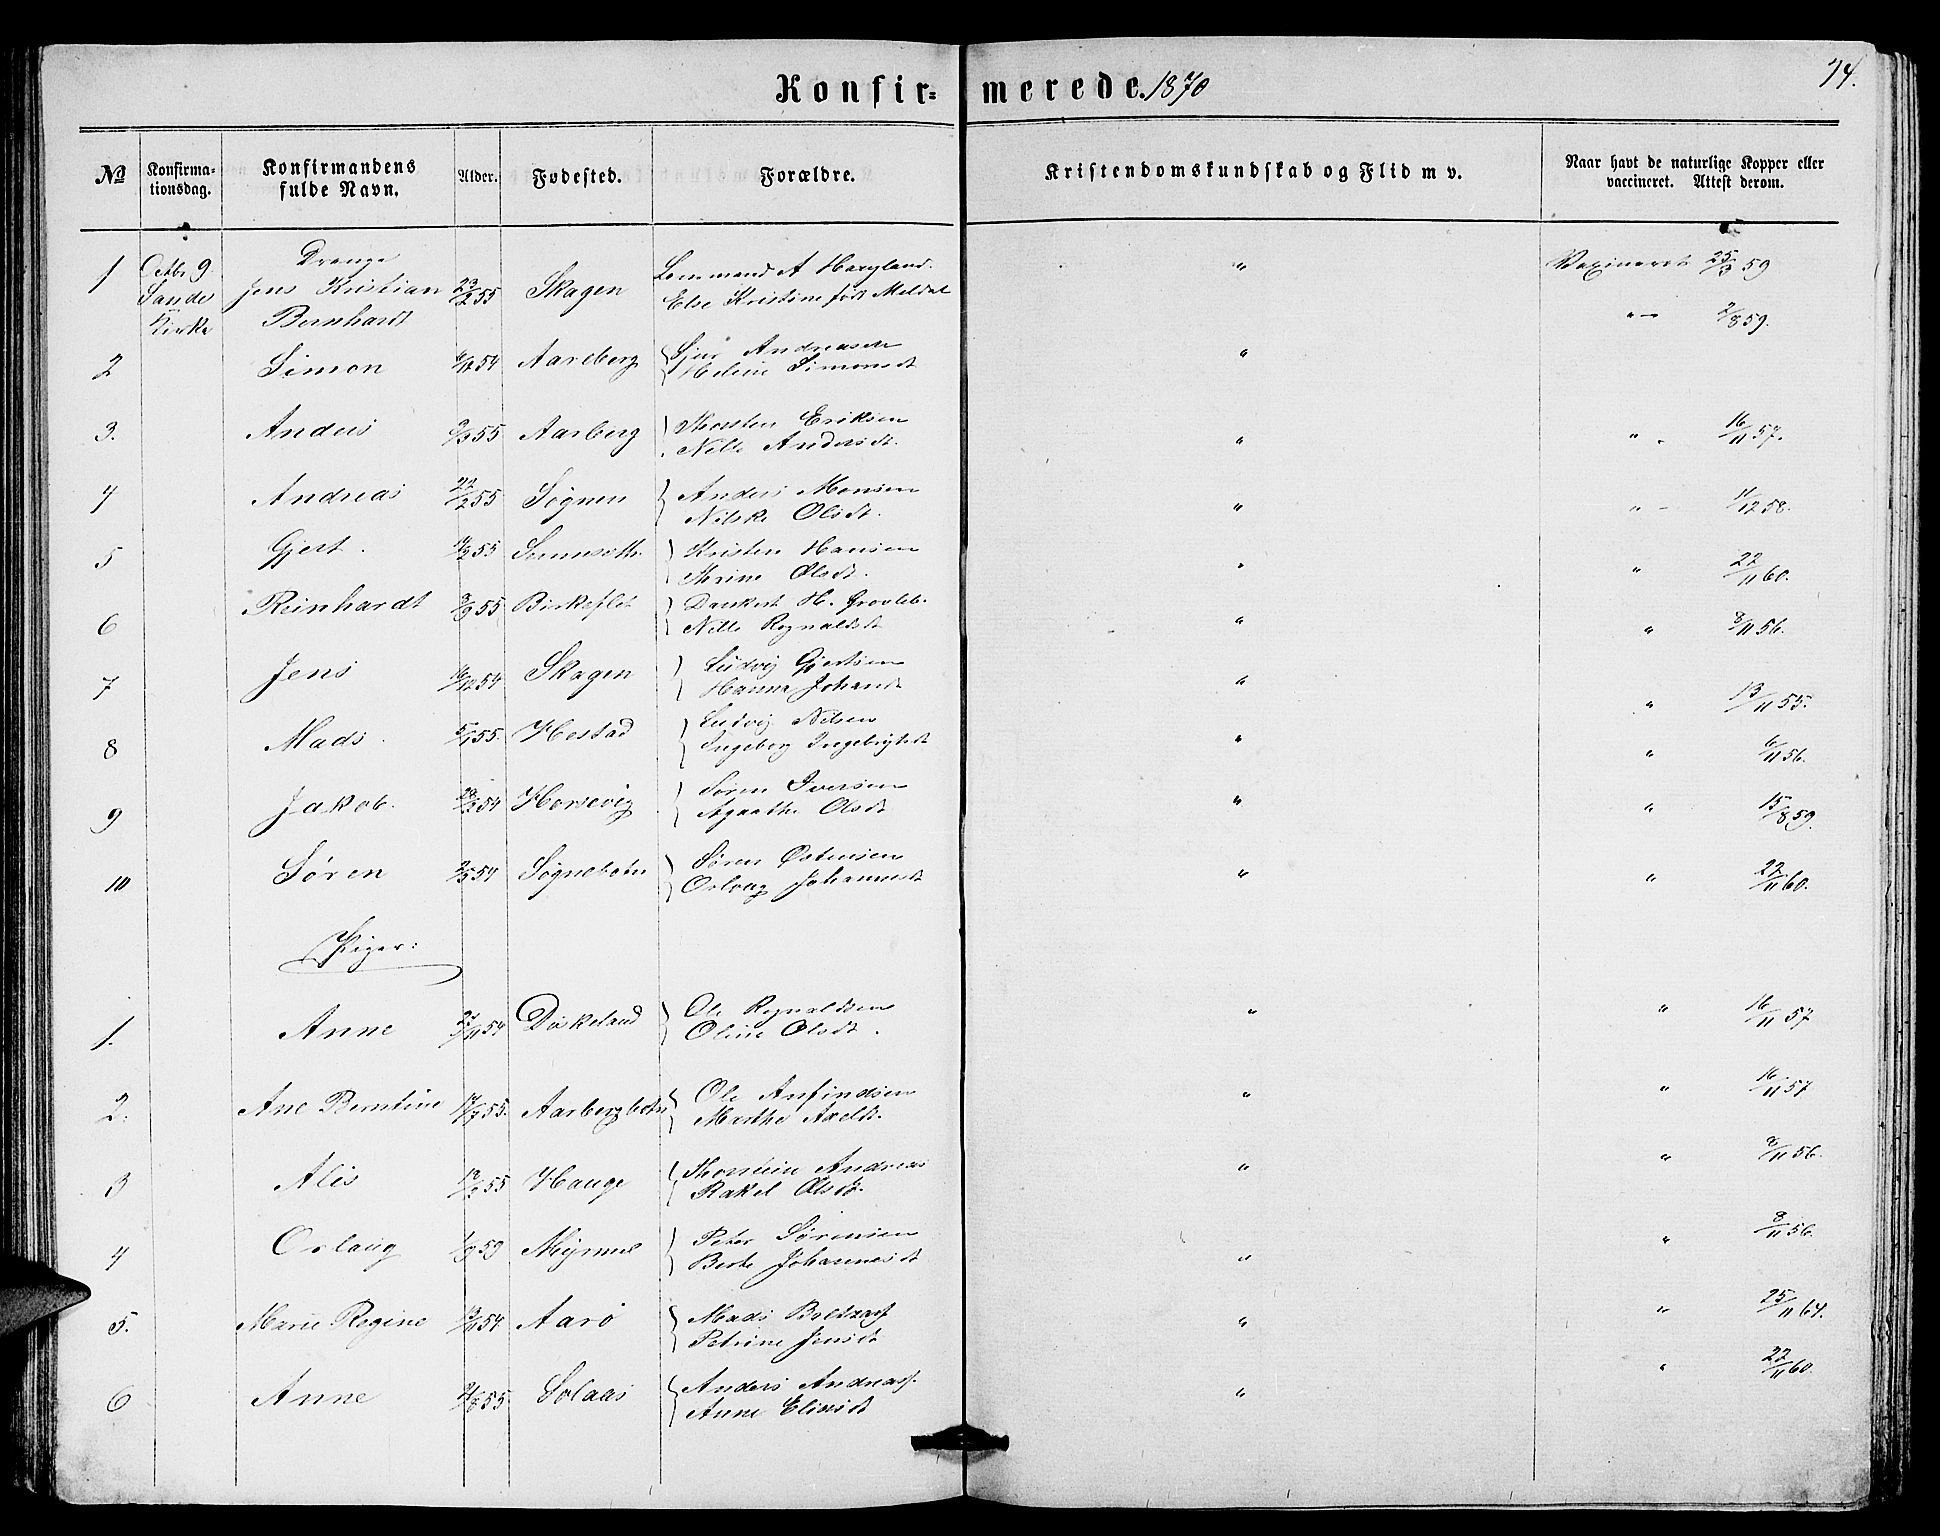 Konfir= merede. 1870
74.
No Konfirma-tionsdag. Konfirmandens fulde Navn. Alder. Fødested. Forældre. Kristendomskundskab og Flid m v. Naar havt de naturlige Kopper eller vaccineret. Attest derom.
Drenge
1 Octbr 9 Sande Kirke Jens Kristian Bernhardt 23/2 55 Skagen Else Kristine født Meldal " Vaxineret 25/3 59
2 Simon 54 Aarberg Sjur Andreasen Heline Simonsdt " " 2/8 59.
3. Anders 55 Aarberg Thorsten Eriksen Nille Andersdt. " " 16/11 57.
4 Andreas 22/2 55 Sögnen Anders Monsen Nilske Olsdt. " " 11/12 58.
5 Gjert. 55 Kristen Hansen Thrine Olsdt. " " 22/11 60.
6 Reinhardt 55 Birkeflet Dankert H. Nille Rognaldsdt " " 8/11 56.
7 Jens 16/12 54 Skagen Ludvig Gjertsen Hanna Johansdt " " 13/11 55.
8 Mads. 5/1 55. Hestad Ludvig Nilsen Ingeborg Ingebrigtsdt " " 6/11 56.
9 Jakob. 54 Horsevig Søren Iversen Agaathe Olsdt " " 15/8 59.
10 Søren 54 Sögnebotn Søren Østensen Orlaug Johannesdt " " 22/11 60.
Piger:
1. Anne 27/11 54 Birkeland Ole Rognaldsen Oline Olsdt. " " 16/11 57
2. Ane Berntine 55. Aarbergbotn Ole Anfindsen Marthe Axeldt. " " 16/11 57
3 Alis 55 Hauge Thorstein Andreas Rakel Olsdt. " " 8/11 56.
4 Orlaug Myrmel Peter Sørensen Berte Johannesdt " " 8/11 56.
5. Marie Regine 13/11 54 Aarö Mads Boltzarsf Petrine Jensdt " " 25/11 64.
6 Anne 55 Solaas Anders Andreasf. Anne Eliasdt " " 22/11 60.